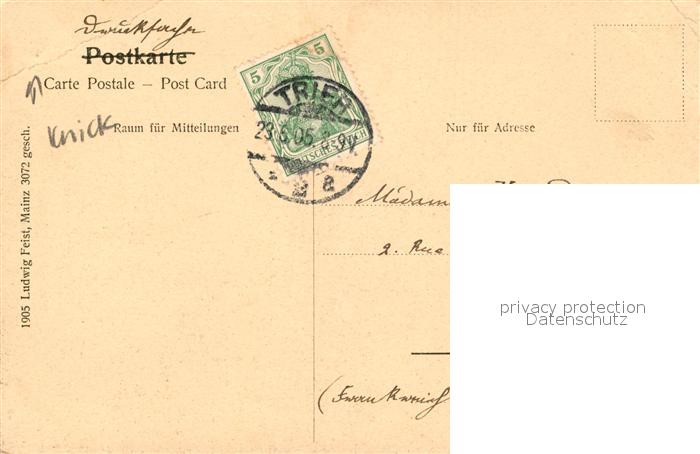 Drucksache
Postkarte
Carte Postale – Post Card
Knick
Raum für Mitteilungen
Nur für Adresse
5 5
TRIER
23.5.05.
DEUTSCHES REICH
a
Madam
2. Rue
privacy protection
Datenschutz
(Frankreich
1905 Ludwig Feist, Mainz 3072 gesch.